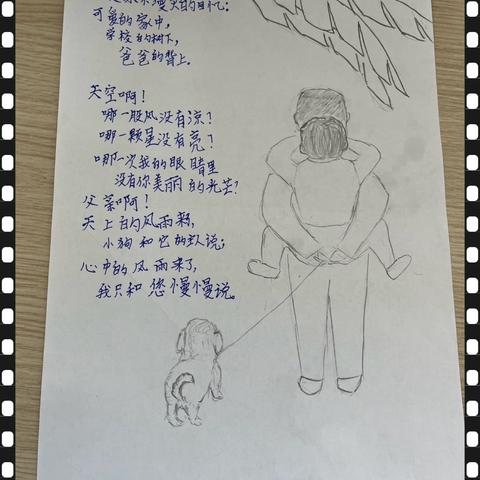 是永不漫灭的回忆:
可爱的家中,
学校的树下,
爸爸的背上.
天空啊!
哪一股风没有凉?
哪一颗星没有亮?
哪一次我的眼睛里
没有你美丽的光芒?
父亲啊!
天上的风雨来了,
小狗和它的主人说;
心中的风雨来了,
我只和您慢慢说。